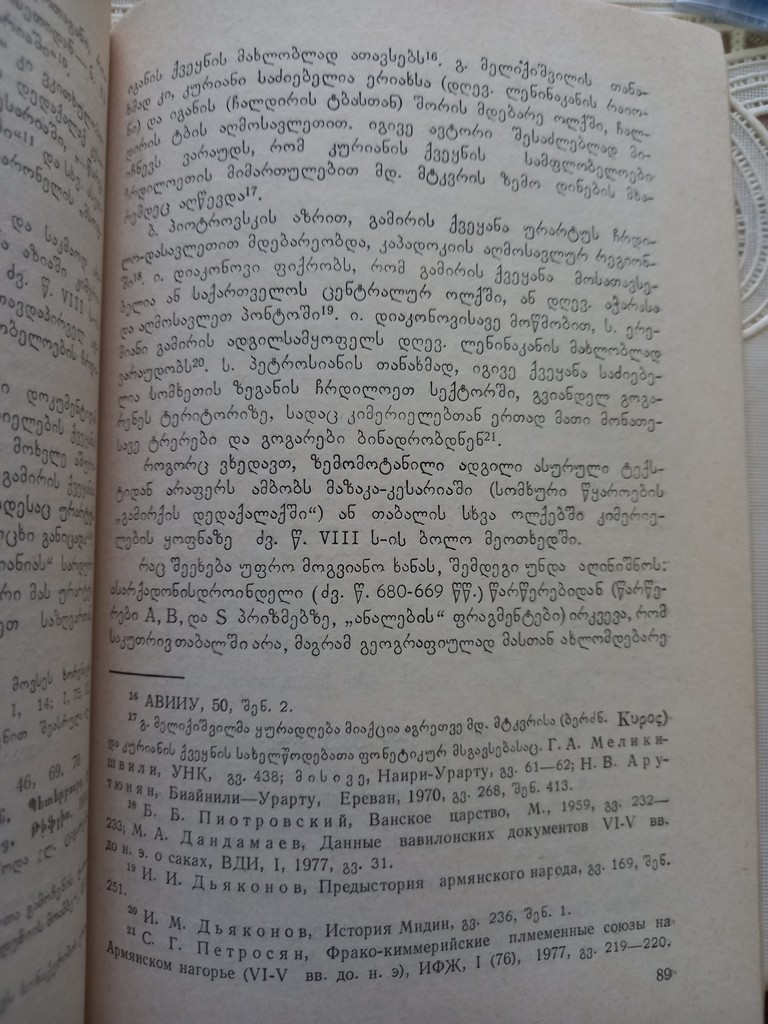 იგანის ქვეყნის მახლობლად ათავსებს¹⁶. გ. მელიქიშვილის თანა-
ხმად კი, კურიანი საძიებელია ერიახსა (დღევ. ლენინაკანის რაიო-
ნი) და იგანის (ჩალდირის ტბასთან) შორის მდებარე ოლქში, ჩალ-
დირის ტბის აღმოსავლეთით. იგივე ავტორი შესაძლებლად მი-
იჩნევს ვარაუდს, რომ კურიანის ქვეყნის სამფლობელოები
ჩრდილოეთის მიმართულებით მდ. მტკვრის ზემო დინების მხა-
რემდეც აღწევდა¹⁷.
ბ. პიოტროვსკის აზრით, გამირის ქვეყანა ურარტუს ჩრდი-
ლო-დასავლეთით მდებარეობდა, კაპადოკიის აღმოსავლურ რეგიონ-
ში¹⁸. ი. დიაკონოვი ფიქრობს, რომ გამირის ქვეყანა მოსათავსე-
ბელია ან საქართველოს ცენტრალურ ოლქში, ან დღევ. აჭარასა
და აღმოსავლეთ პონტოში¹⁹. ი. დიაკონოვისავე მოწმობით, ს. ერე-
მიანი გამირის ადგილსამყოფელს დღევ. ლენინაკანის მახლობლად
ვარაუდობს²⁰. ს. პეტროსიანის თანახმად, იგივე ქვეყანა საძიებე-
ლია სომხეთის ზეგანის ჩრდილოეთ სექტორში, გვიანდელ გოგა-
რენეს ტერიტორიზე, სადაც კიმერიელებთან ერთად მათი მონათე-
სავე ტრერები და გოგარები ბინადრობდნენ²¹.
როგორც ვხედავთ, ზემომოტანილი ადგილი ასურული ტექს-
ტიდან არაფერს ამბობს მაზაკა-კესარიაში (სომხური წყაროების
„გამირქის დედაქალაქში“) ან თაბალის სხვა ოლქებში კიმერიე-
ლების ყოფნაზე ძვ. წ. VIII ს-ის ბოლო მეოთხედში.
რაც შეეხება უფრო მოგვიანო ხანას, შემდეგი უნდა აღინიშნოს:
ასარქადონისდროინდელი (ძვ. წ. 680-669 წწ.) წარწერებიდან (წარწე-
რები A, B, და S პრიზმებზე, „ანალების“ ფრაგმენტები) ირკვევა, რომ
საკუთრივ თაბალში არა, მაგრამ გეოგრაფიულად მასთან ახლომდებარე
¹⁶ АВИИУ, 50, შენ. 2.
¹⁷ გ. მელიქიშვილმა ყურადღება მიაქცია აგრეთვე მდ. მტკვრისა (ბერძნ. Κυρος)
და კურიანის ქვეყნის სახელწოდებათა ფონეტიკურ მსგავსებასაც. Г. А. Мелики-
швили, УНК, გვ. 438; მისივე, Наири-Урарту, გვ. 61—62; Н. В. Ару-
тюнян, Биайнили—Урарту, Ереван, 1970, გვ. 268, შენ. 413.
¹⁸ Б. Б. Пиотровский, Ванское царство, М., 1959, გვ. 232—
233; М. А. Дандамаев, Данные вавилонских документов VI-V вв.
до н. э. о саках, ВДИ, I, 1977, გვ. 31.
¹⁹ И. И. Дьяконов, Предыстория армянского народа, გვ. 169, შენ.
251.
²⁰ И. М. Дьяконов, История Мидии, გვ. 236, შენ. 1.
²¹ С. Г. Петросян, Фрако-киммерийские плмеменные союзы на
Армянском нагорье (VI-V вв. до. н. э), ИФЖ, I (76), 1977, გვ. 219—220.
89